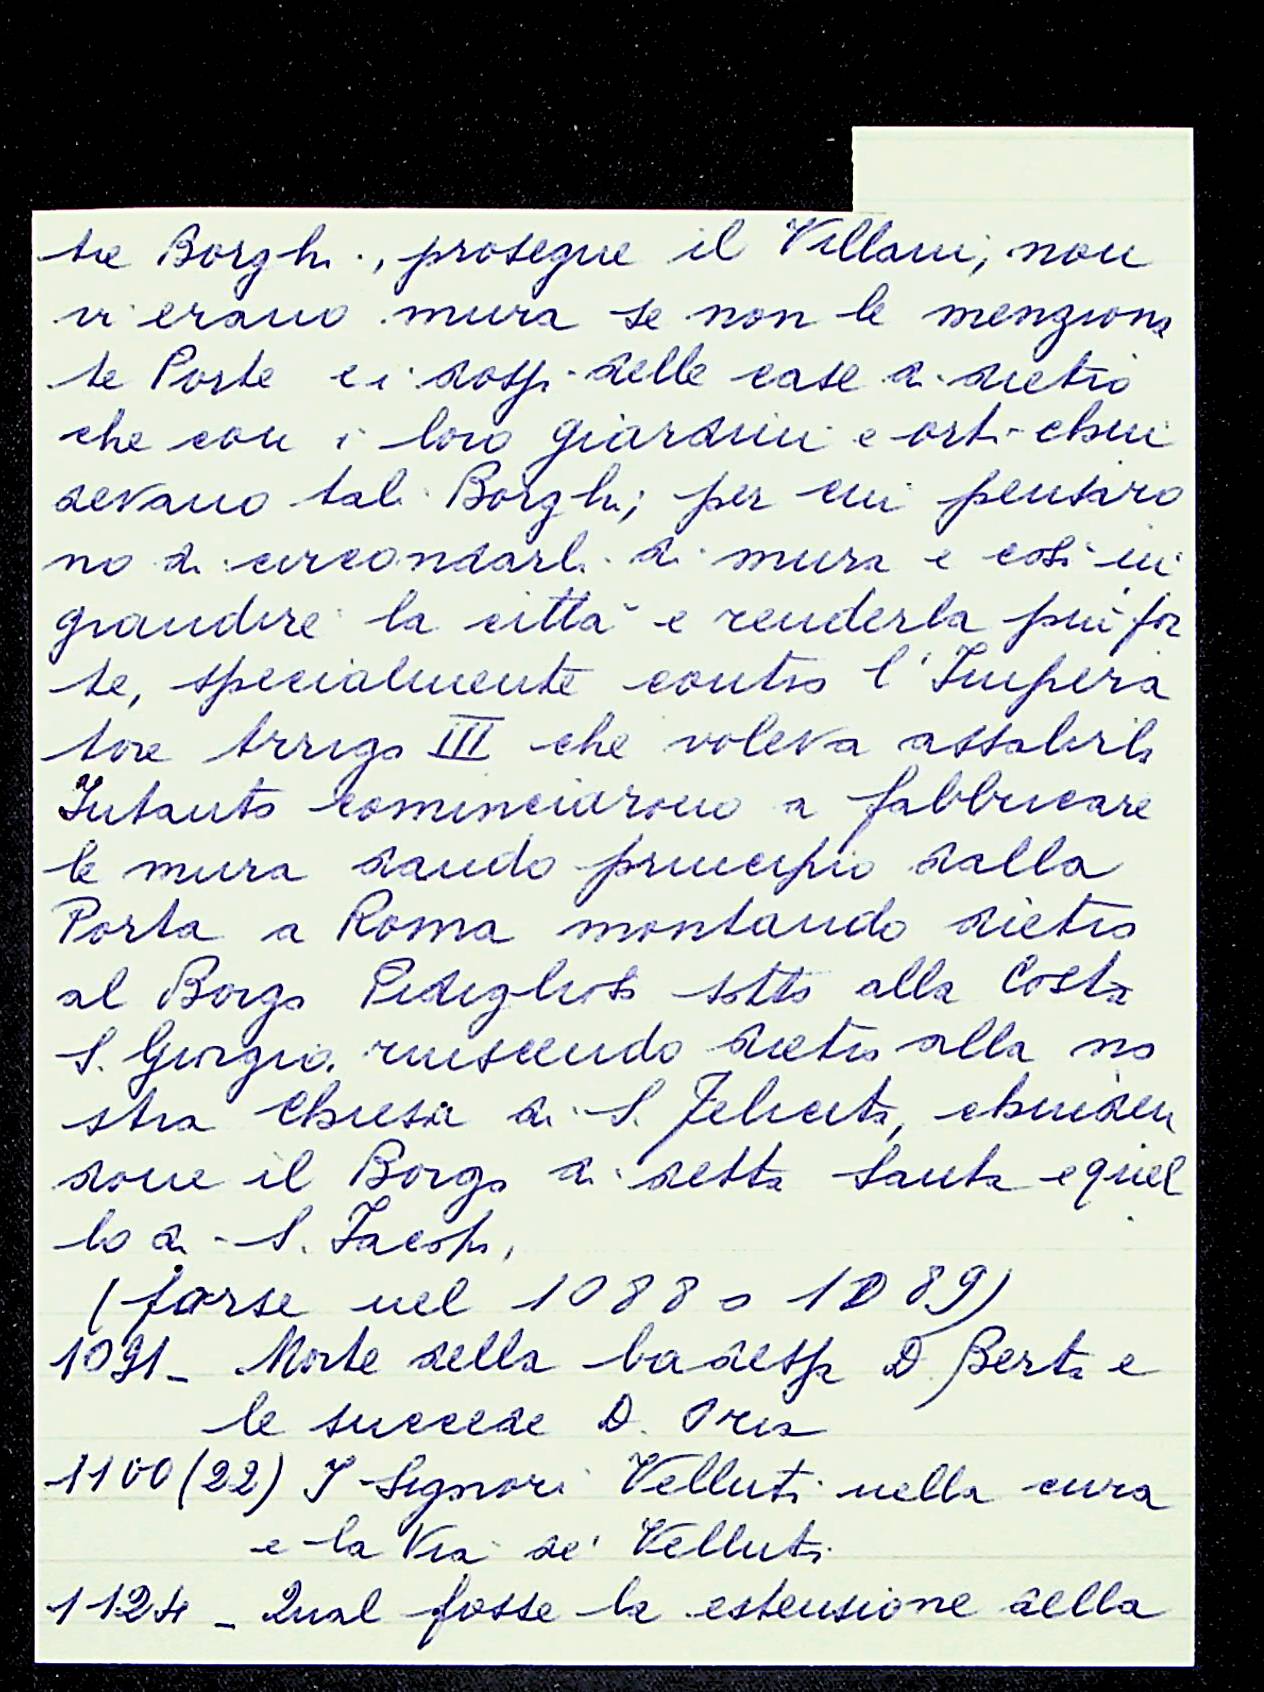 tre Borghi, prosegue il Villani, non
vi erano mura se non le menziona
te Porte e i dossi delle case di dietro
che con i loro giardini e orti chiu
devano tali Borghi; per cui pensaro
no di circondarli di mura e così in
grandire la città e renderla più for
te, specialmente contro l'Impera
tore Arrigo III che voleva assalirla
Intanto cominciarono a fabbricare
le mura dando principio dalla
Porta a Roma montando dietro
al Borgo Pidiglioso sotto alla Costa
S. Giorgio, riuscendo dietro alla no
stra Chiesa di S. Felicita, chiuden
done il Borgo di detta Santa e quel
lo di S. Jacopo,
(forse nel 1088 o 1089)
1091 - Morte della badessa D. Berta e
le succede D. Oria
1100 (22) I Signori Velluti nella cura
e la Via de' Velluti
1124 - Qual fosse la estensione della